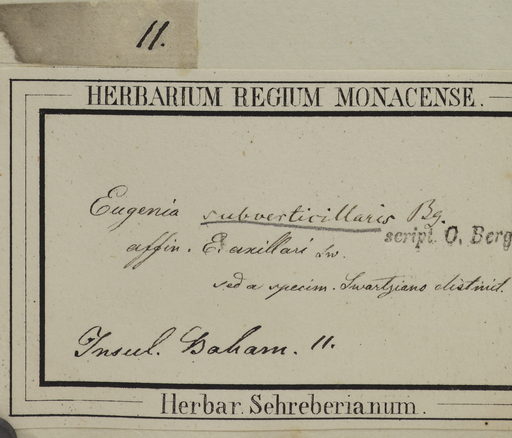 11.
HERBARIUM REGIUM MONACENSE.
Eugenia subverticillaris Bg.
script. O. Berg
affin. E. axillari Sw.
sed a specim. Swartziano distinct.
Insul. Baham. 11.
Herbar. Schreberianum.